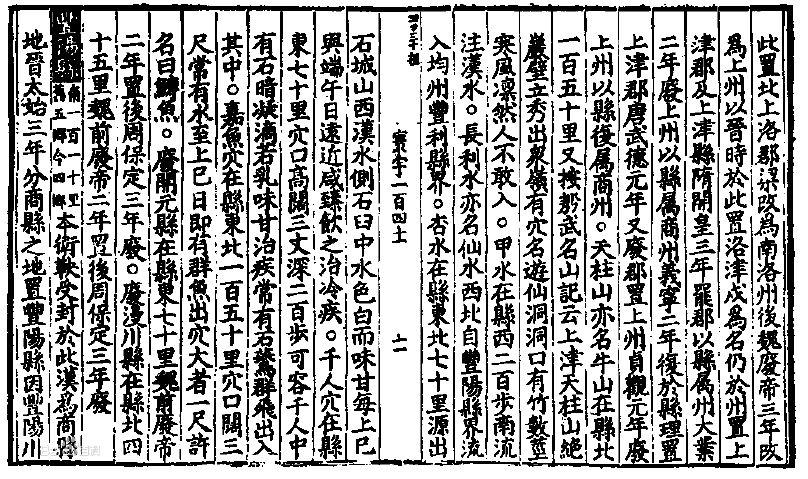 此置北上洛郡梁改為南洛州後魏廢帝三年改
為上州以晉時於此置洛津戍為名仍於州置上
津郡及上津縣隋開皇三年罷郡以縣属州大業
二年廢上州以縣属商州義寧二年復於縣理置
上津郡唐武德元年又廢郡置上州貞觀元年廢
上州以縣復属商州○天柱山亦名牛山在縣北
一百五十里又按郭武名山記云上津天柱山絕
巖壁立秀出眾嶺有穴名遊仙洞洞口有竹數莖
寒風凛然人不敢入○甲水在縣西二百步南流
注漢水○長利水亦名仙水西北自豐陽縣界流
入均州豐利縣界○杏水在縣東北七十里源出
寰宇一百四十
十一
石城山西漢水側石臼中水色白而味甘每上巳
與端午日遠近咸臻飲之治冷疾○千人穴在縣
東七十里穴口高闊三丈深二百步可容千人中
有石暗凝滴若乳味甘治疾常有石鷰群飛出入
其中○嘉魚穴在縣東北一百五十里穴口闊三
尺常有水至上巳日即有群魚出穴大者一尺許
名曰魚○廢開元縣在縣東七十里魏前廢帝
二年置後周保定三年廢○廢漫川縣在縣北四
十五里魏前廢帝二年置後周保定三年廢
豐陽縣南一百一十里舊五鄉今四鄉本衛鞅受封於此漢為商縣
地晉太始三年分商縣之地置豐陽縣因豐陽川